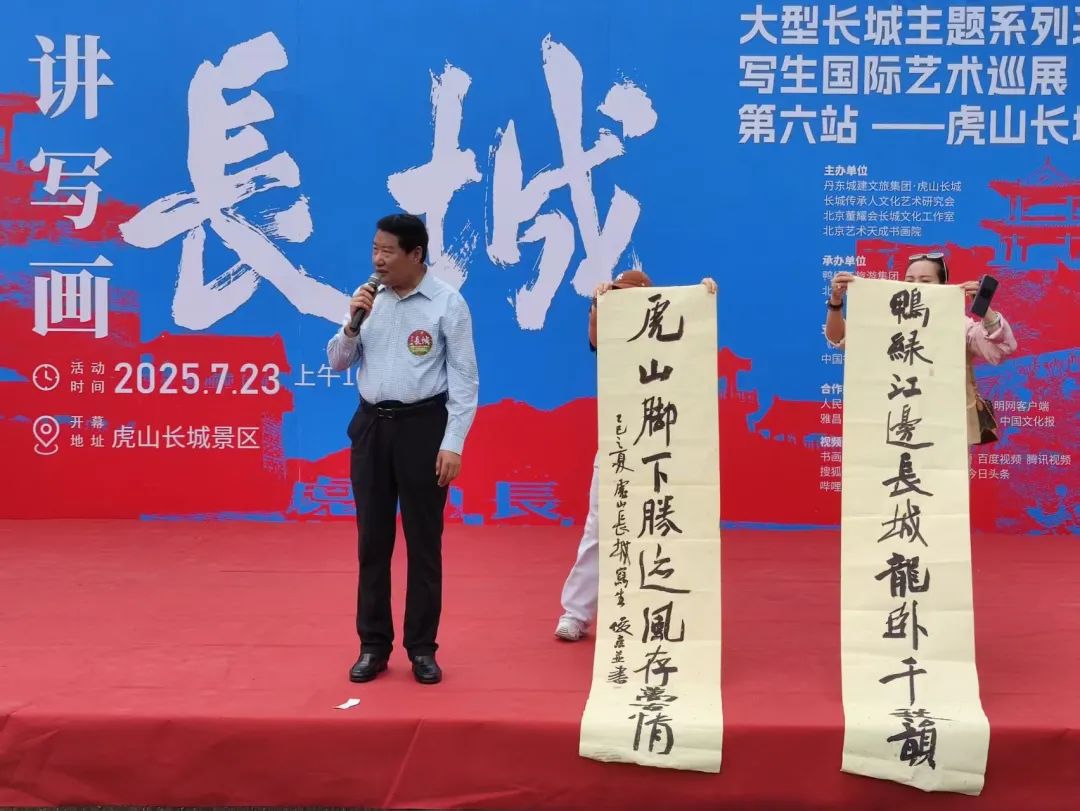 讲写画
長城
活动时间 2025.7.23 上午1
开幕地址 虎山长城景区
大型长城主题系列
写生国际艺术巡展
第六站 ——虎山长
主办单位
丹东城建文旅集团·虎山长城
长城传承人文化艺术研究会
北京董耀会长城文化工作室
北京艺术天成书画院
承办单位
旅游集团
中国
合作
人民
雅昌
明网客户端
中国文化报
视频
书画
百度视频 腾讯视频
搜狐
今日头条
哔哩
虎山長
長城
鴨緑江邊長城龍卧千韻
虎山脚下勝迹風存情
乙巳之夏 虎山長城寫生 並書